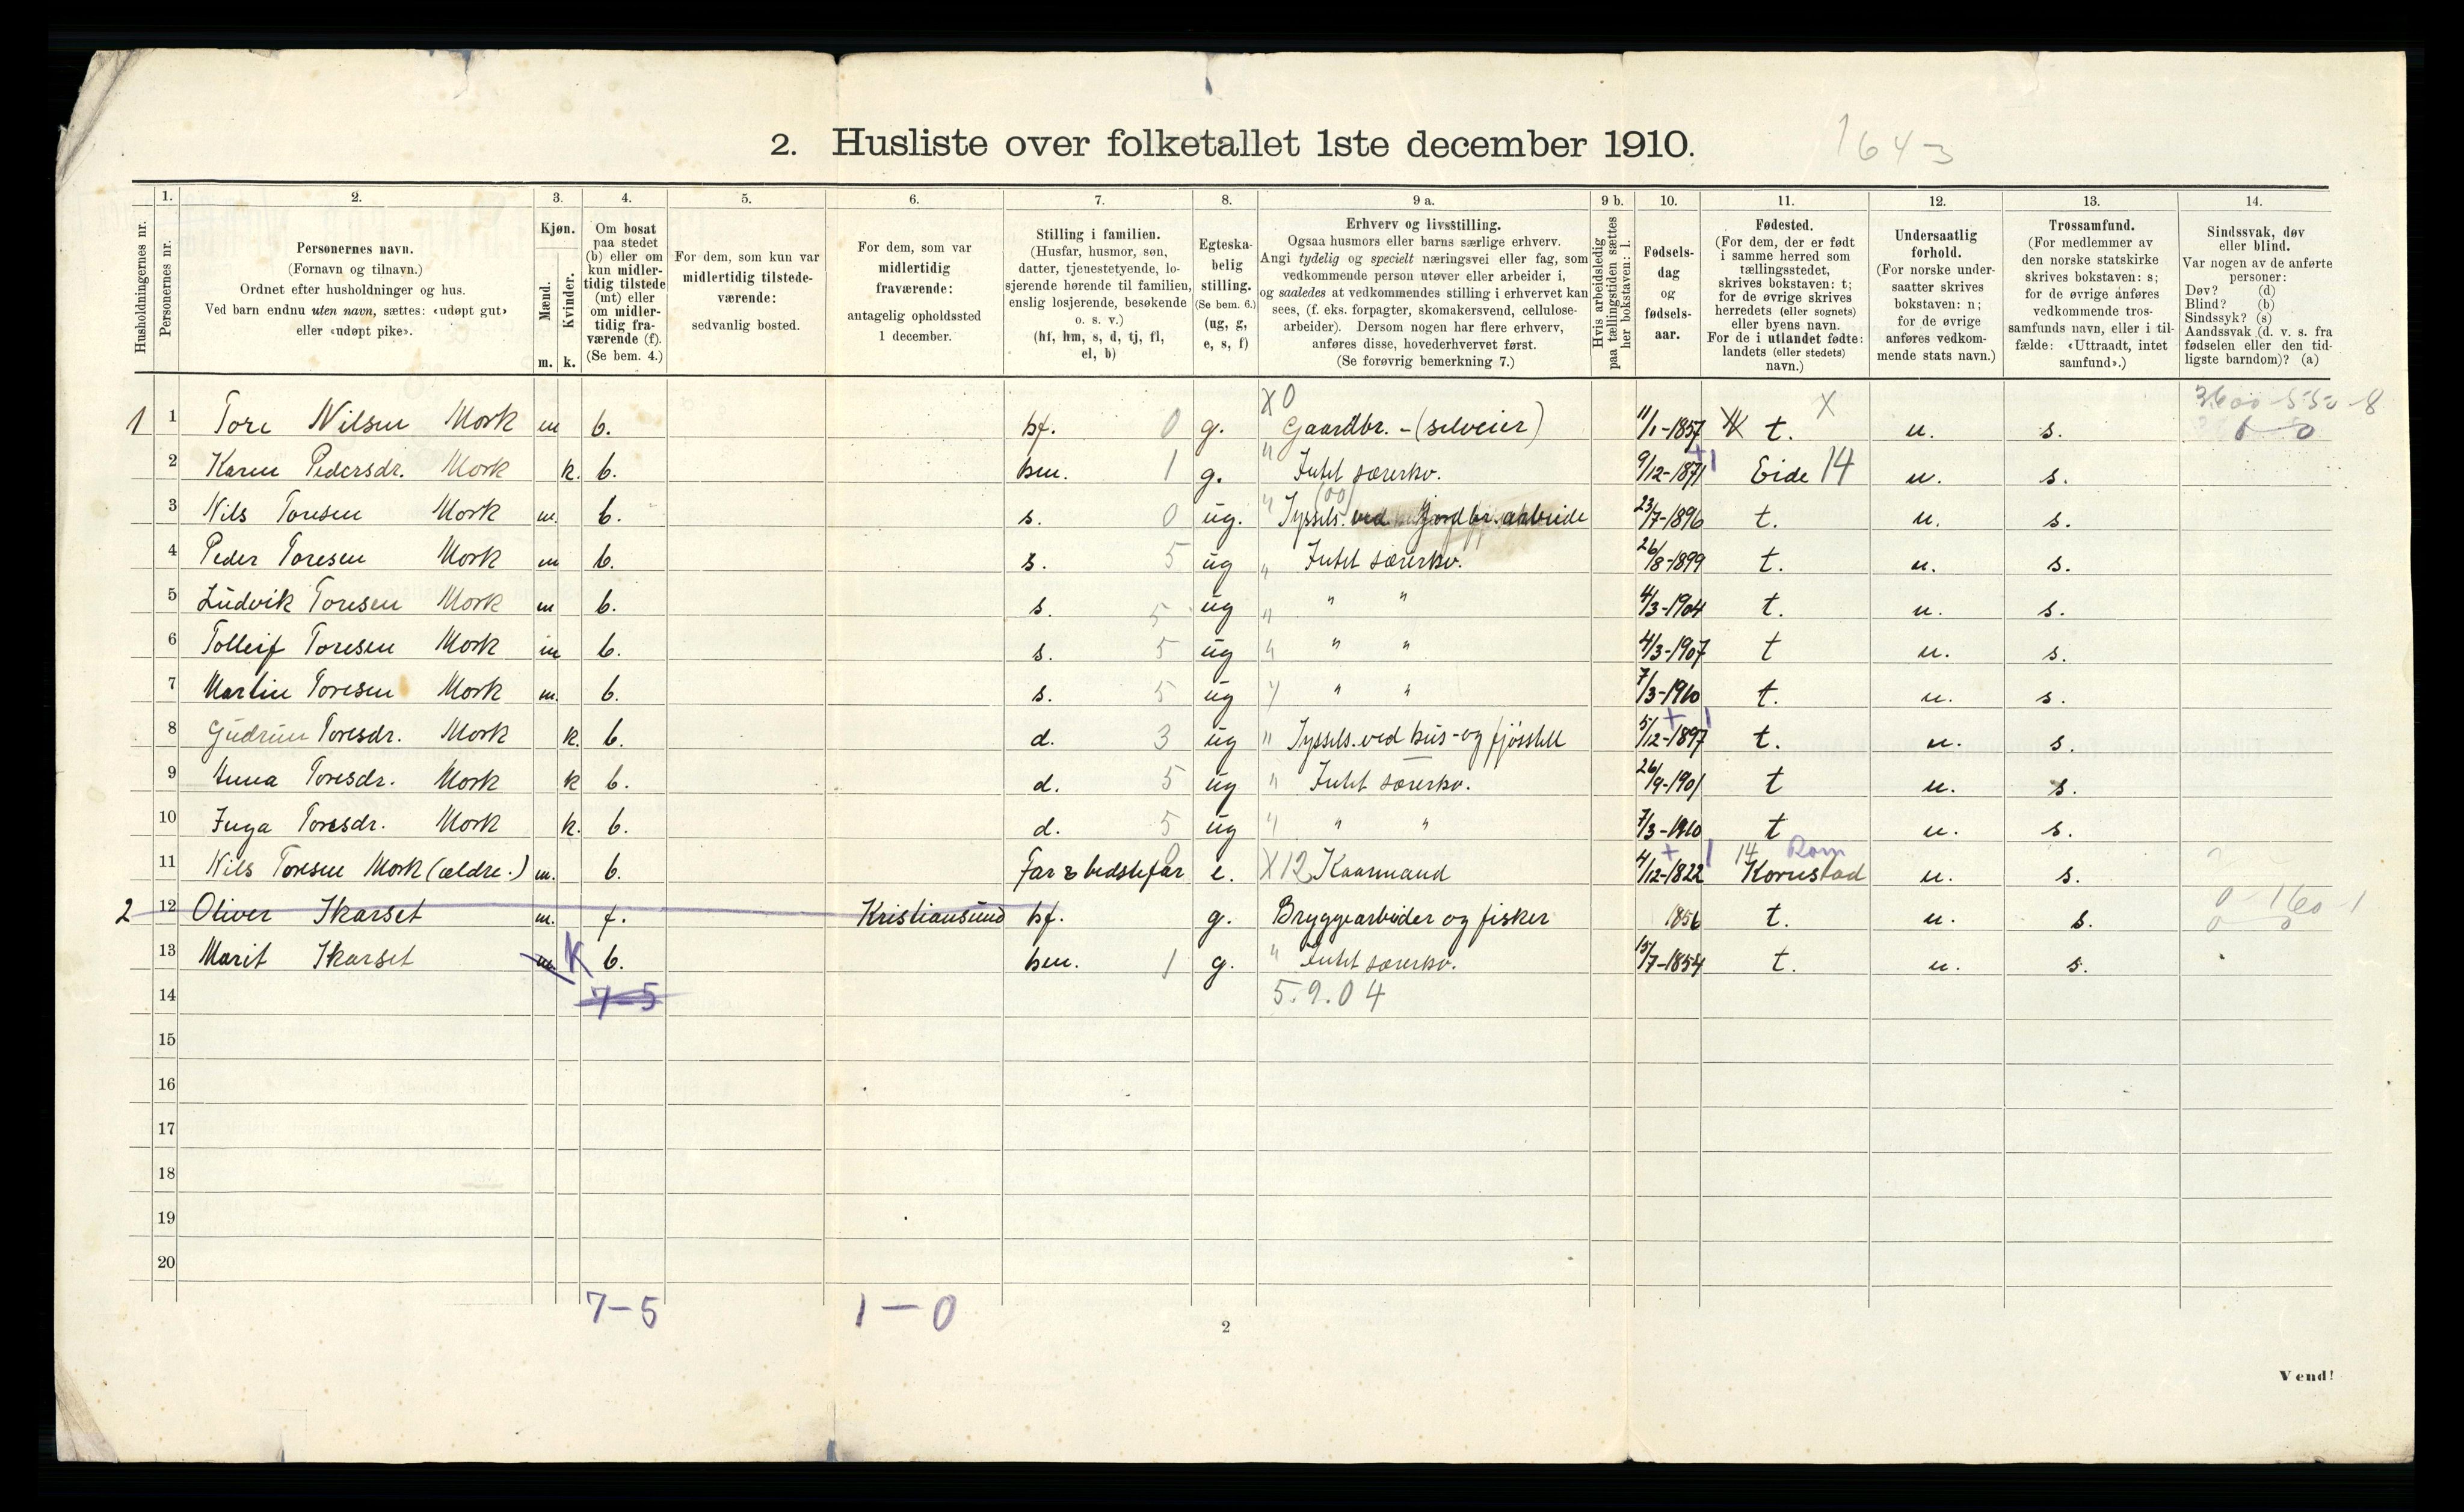 2. Husliste over folketallet 1ste december 1910.
1643
Husholdningernes nr.
1. Personernes nr.
2. Personernes navn.
(Fornavn og tilnavn.)
Ordnet efter husholdninger og hus.
Ved barn endnu uten navn, sættes: «udøpt gut»
eller «udøpt pike».
3. Kjøn.
Mænd. m.
Kvinder. k.
4. Om bosat
paa stedet
(b) eller om
kun midler-
tidig tilstede
(mt) eller
om midler-
tidig fra-
værende (f).
(Se bem. 4.)
5. For dem, som kun var
midlertidig tilstede-
værende:
sedvanlig bosted.
6. For dem, som var
midlertidig
fraværende:
antagelig opholdssted
1 december.
7. Stilling i familien.
(Husfar, husmor, søn,
datter, tjenestetyende, lo-
sjerende hørende til familien,
enslig losjerende, besøkende
o. s. v.)
(hf, hm, s, d, tj, fl,
el, b)
8. Egteska-
belig
stilling.
(Se bem. 6.)
(ug, g,
e, s, f)
9 a. Erhverv og livsstilling.
Ogsaa husmors eller barns særlige erhverv.
Angi tydelig og specielt næringsvei eller fag, som
vedkommende person utøver eller arbeider i,
og saaledes at vedkommendes stilling i erhvervet kan
sees, (f. eks. forpagter, skomakersvend, cellulose-
arbeider). Dersom nogen har flere erhverv,
anføres disse, hovederhvervet først.
(Se forøvrig bemerkning 7.)
9 b. Hvis arbeidsledig
paa tællingstiden sættes
her bokstaven: l.
10. Fødsels-
dag
og
fødsels-
aar.
11. Fødested.
(For dem, der er født
i samme herred som
tællingsstedet,
skrives bokstaven: t;
for de øvrige skrives
herredets (eller sognets)
eller byens navn.
For de i utlandet fødte:
landets (eller stedets)
navn.)
12. Undersaatlig
forhold.
(For norske under-
saatter skrives
bokstaven: n;
for de øvrige
anføres vedkom-
mende stats navn.)
13. Trossamfund.
(For medlemmer av
den norske statskirke
skrives bokstaven: s;
for de øvrige anføres
vedkommende tros-
samfunds navn, eller i til-
fælde: «Uttraadt, intet
samfund».)
14. Sindssvak, døv
eller blind.
Var nogen av de anførte
personer:
Døv? (d)
Blind? (b)
Sindssyk? (s)
Aandssvak (d. v. s. fra
fødselen eller den tid-
ligste barndom)? (a)
X0 X 3600-550-8
1 1 Tore Nilsen Mork m b. hf. 0 g. Gaardbr. - (selveier) 11/1-1857 t. n. s. 0 0
2 Karen Pedersdr. Mork k. b. hm. 1 g. " Intet særerhv. 9/12-1871 Eide 14 n. s.
3 Nils Toresen Mork m. b. s. 0 ug. " Syssels. ved Jordbr. arbeide 23/7-1896 t. n. s.
4 Peder Toresen Mork m b. s. 5 ug " Intet særerhv. 26/8-1899 t. n. s.
5 Ludvik Toresen Mork m b. s. 5 ug " " " 4/3-1904 t. n. s.
6 Tolleif Toresen Mork m b. s. 5 ug " " " 4/3-1907 t n. s.
7 Martin Toresen Mork m. b. s. 5 ug " " " 7/3-1910 t. n. s.
8 Gudrun Toresdr. Mork k. b. d. 3 ug " Syssels. ved hus- og fjøsstell 5/12-1897 t. n. s.
9 Anna Toresdr. Mork k b. d. 5 ug " Intet særerhv. 26/9-1901 t n. s.
10 Inga Toresdr. Mork k. b. d. 5 ug " " " 7/3-1910 t n. s.
14 Rom
11 Nils Toresen Mork (ældre.) m. b. Far & bedstefar e. X12 Kaarmand 4/12-1822 Kornstad n. s.
2 12 Oliver Ikarset m. f. Kristiansund hf. g. Bryggearbeider og fisker 1856 t. n. s. 0-160-1 0 0
13 Marit Ikarset m. K b. hm. 1 g. " Intet særerhv. 15/7-1854 t. n. s.
14 7-5 5.9.04
15
16
17
18
19
20
7-5 1-0
2
Vend!